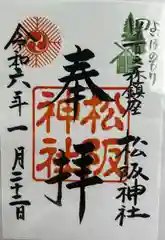 よいほのもり
四五百之森鎮座
松阪神社
奉拝
松阪神社
令和六年一月二十二日